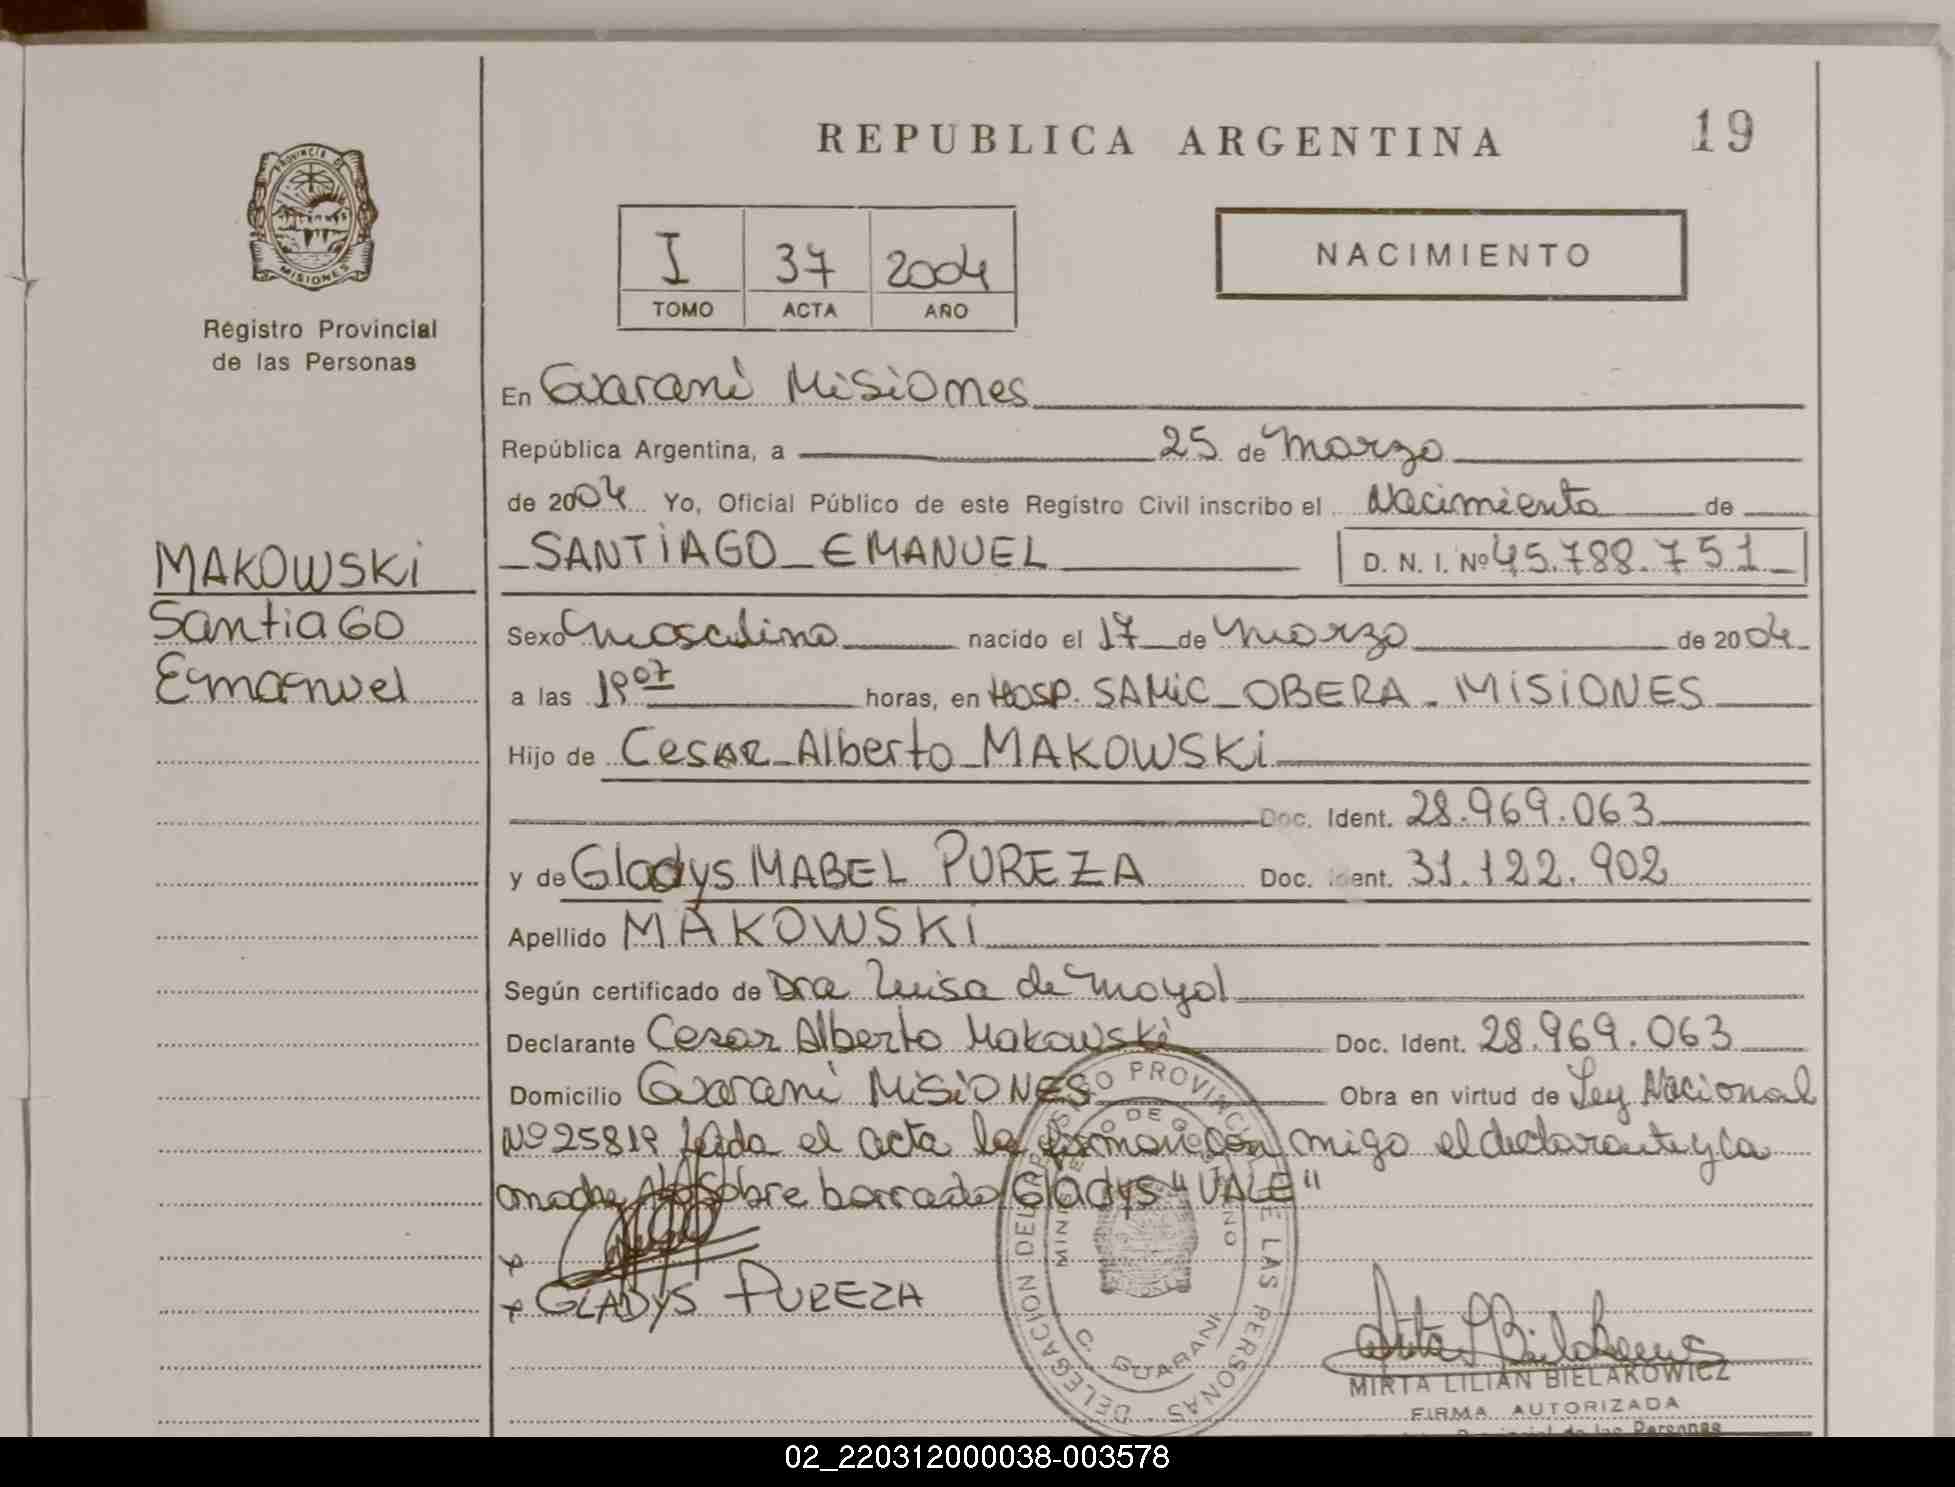 REPUBLICA ARGENTINA
19
PROVINCIA DE
MISIONES
Registro Provincial
de las Personas
I 37 2004
TOMO ACTA AÑO
NACIMIENTO
En Guaraní Misiones
República Argentina, a 25 de Marzo
de 2004 Yo, Oficial Público de este Registro Civil inscribo el Nacimiento de
SANTIAGO EMANUEL D. N. I. Nº 45.788.751
MAKOWSKI
Santiago
Emanuel
Sexo Masculino nacido el 17 de Marzo de 2004
a las 19 07 horas, en HOSP. SAMIC OBERA - MISIONES
Hijo de Cesar Alberto MAKOWSKI
Doc. Ident. 28.969.063
y de Gladys MABEL PUREZA Doc. Ident. 31.122.902
Apellido MAKOWSKI
Según certificado de Dra Luisa de Moyal
Declarante Cesar Alberto Makowski Doc. Ident. 28.969.063
Domicilio Guaraní MISIONES Obra en virtud de Ley Nacional
Nº 25819 leída el acta la firman con migo el declarante y la
madre sobre borrado Gladys "VALE"
GLADYS PUREZA
DELEGACION DEL REGISTRO PROVINCIAL DE LAS PERSONAS
C. GUARANI
MIRTA LILIAN BIELAKOWICZ
FIRMA AUTORIZADA
Provincial de las Personas
02_220312000038-003578